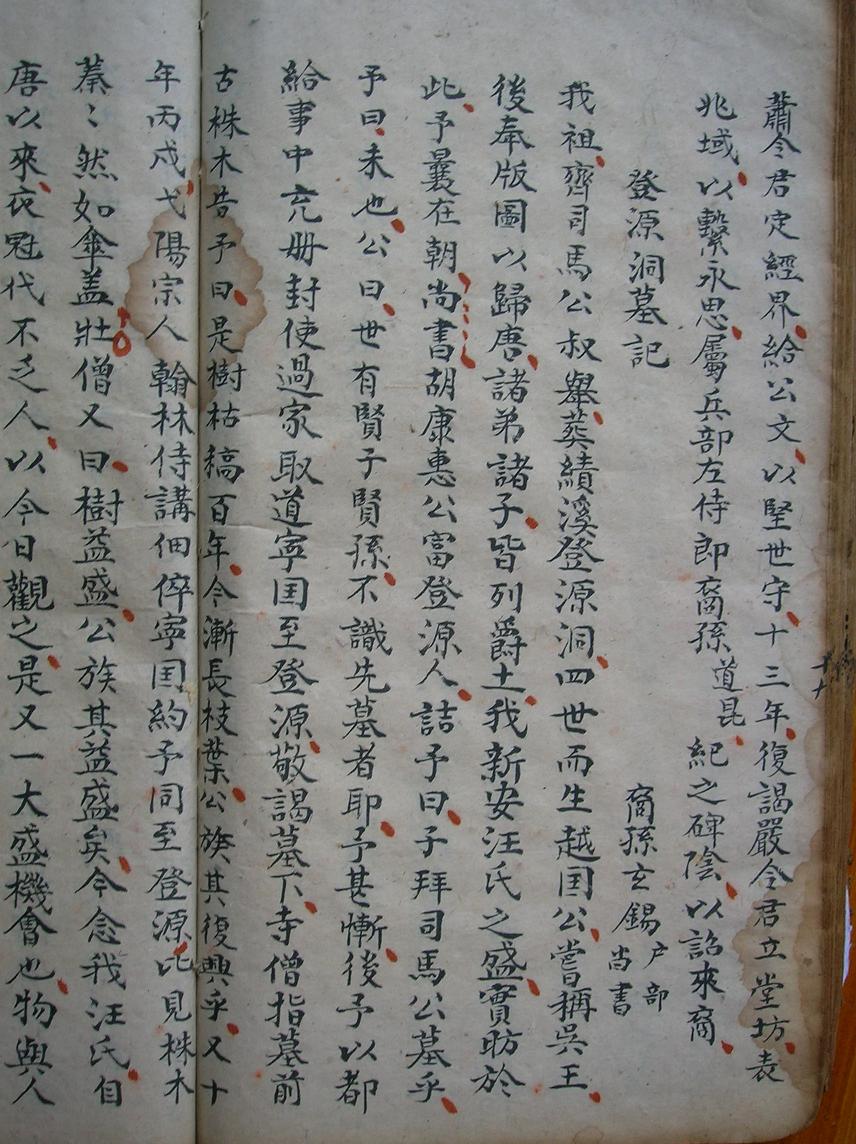 蕭令君定經界給公文以堅世守十三年復謁嚴令君立堂坊表
兆域以繫永思屬兵部左侍郎裔孫道昆紀之碑陰以詔來裔
登源洞墓記 裔孫玄錫戶部尚書
我祖齊司馬公叔舉葬績溪登源洞四世而生越囯公嘗稱吳王
後奉版圖以歸唐諸弟諸子皆列爵土我新安汪氏之盛實昉於
此予曩在朝尚書胡康惠公富登源人詰予曰子拜司馬公墓乎
予曰未也公曰世有賢子賢孫不識先墓者耶予甚慚後予以都
給事中充册封使過家取道寧囯至登源敬謁墓下寺僧指墓前
古株木告予曰是樹枯稿百年今漸長枝葉公族其復興乎又十
年丙戍弋陽宗人翰林侍講佃倅寧囯約予同至登源比見株木
蓁〻然如傘盖壯僧又曰樹益盛公族其益盛矣今念我汪氏自
唐以來衣冠代不乏人以今日觀之是又一大盛機會也物與人